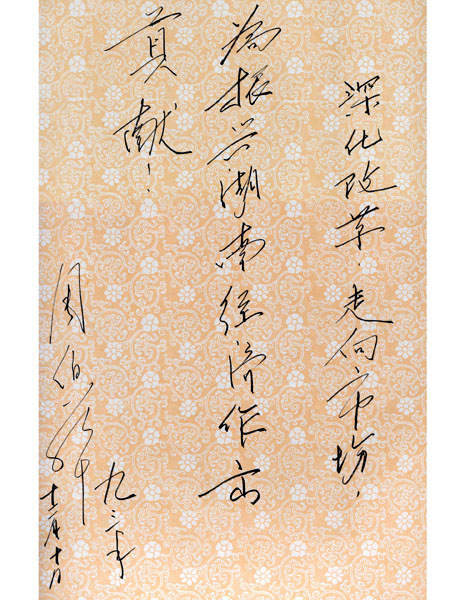 深化改革，走向市场，
為振兴湖南经济作出
貢献！
周伯華
九三年
十二月十日